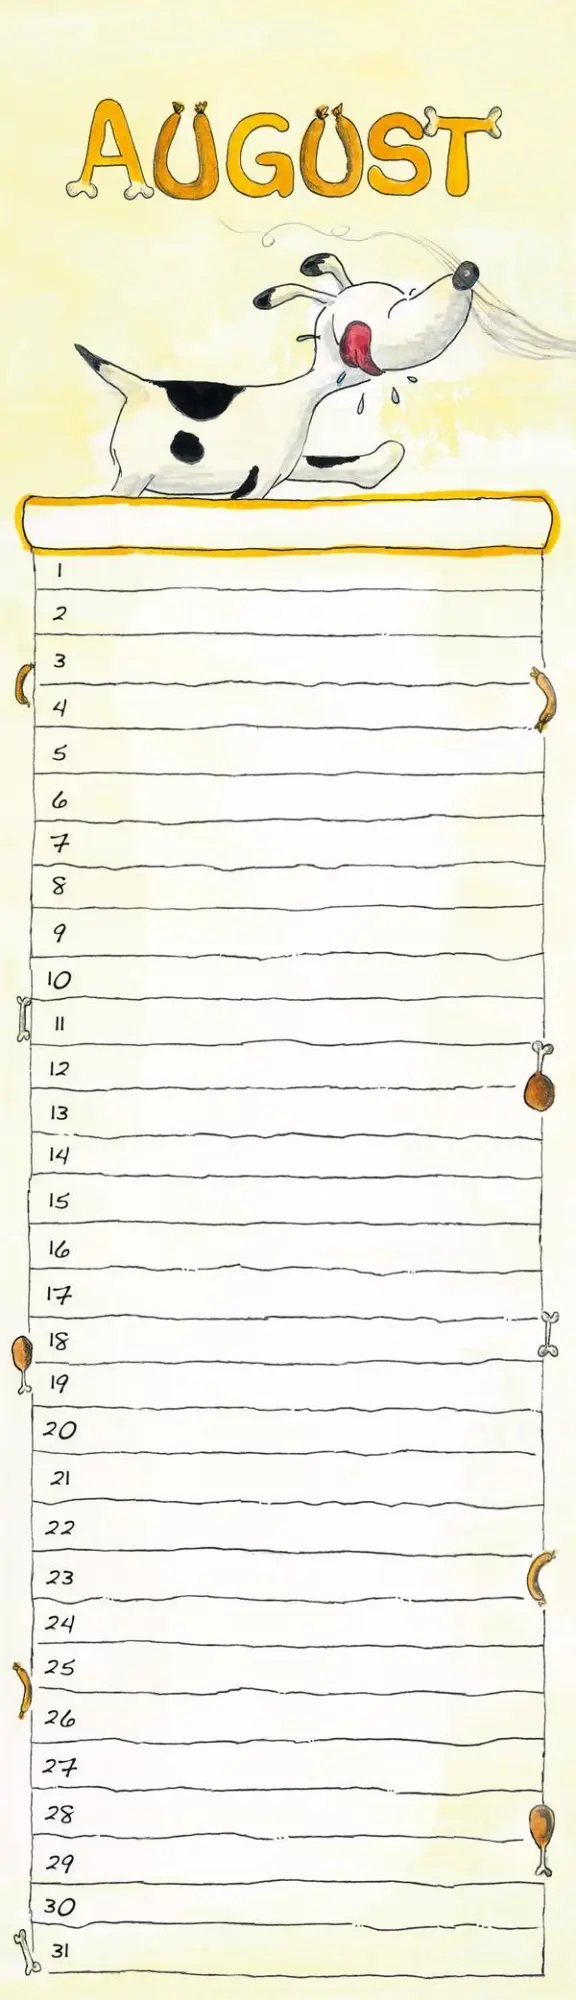 AUGUST
1
2
3
4
5
6
7
8
9
10
11
12
13
14
15
16
17
18
19
20
21
22
23
24
25
26
27
28
29
30
31